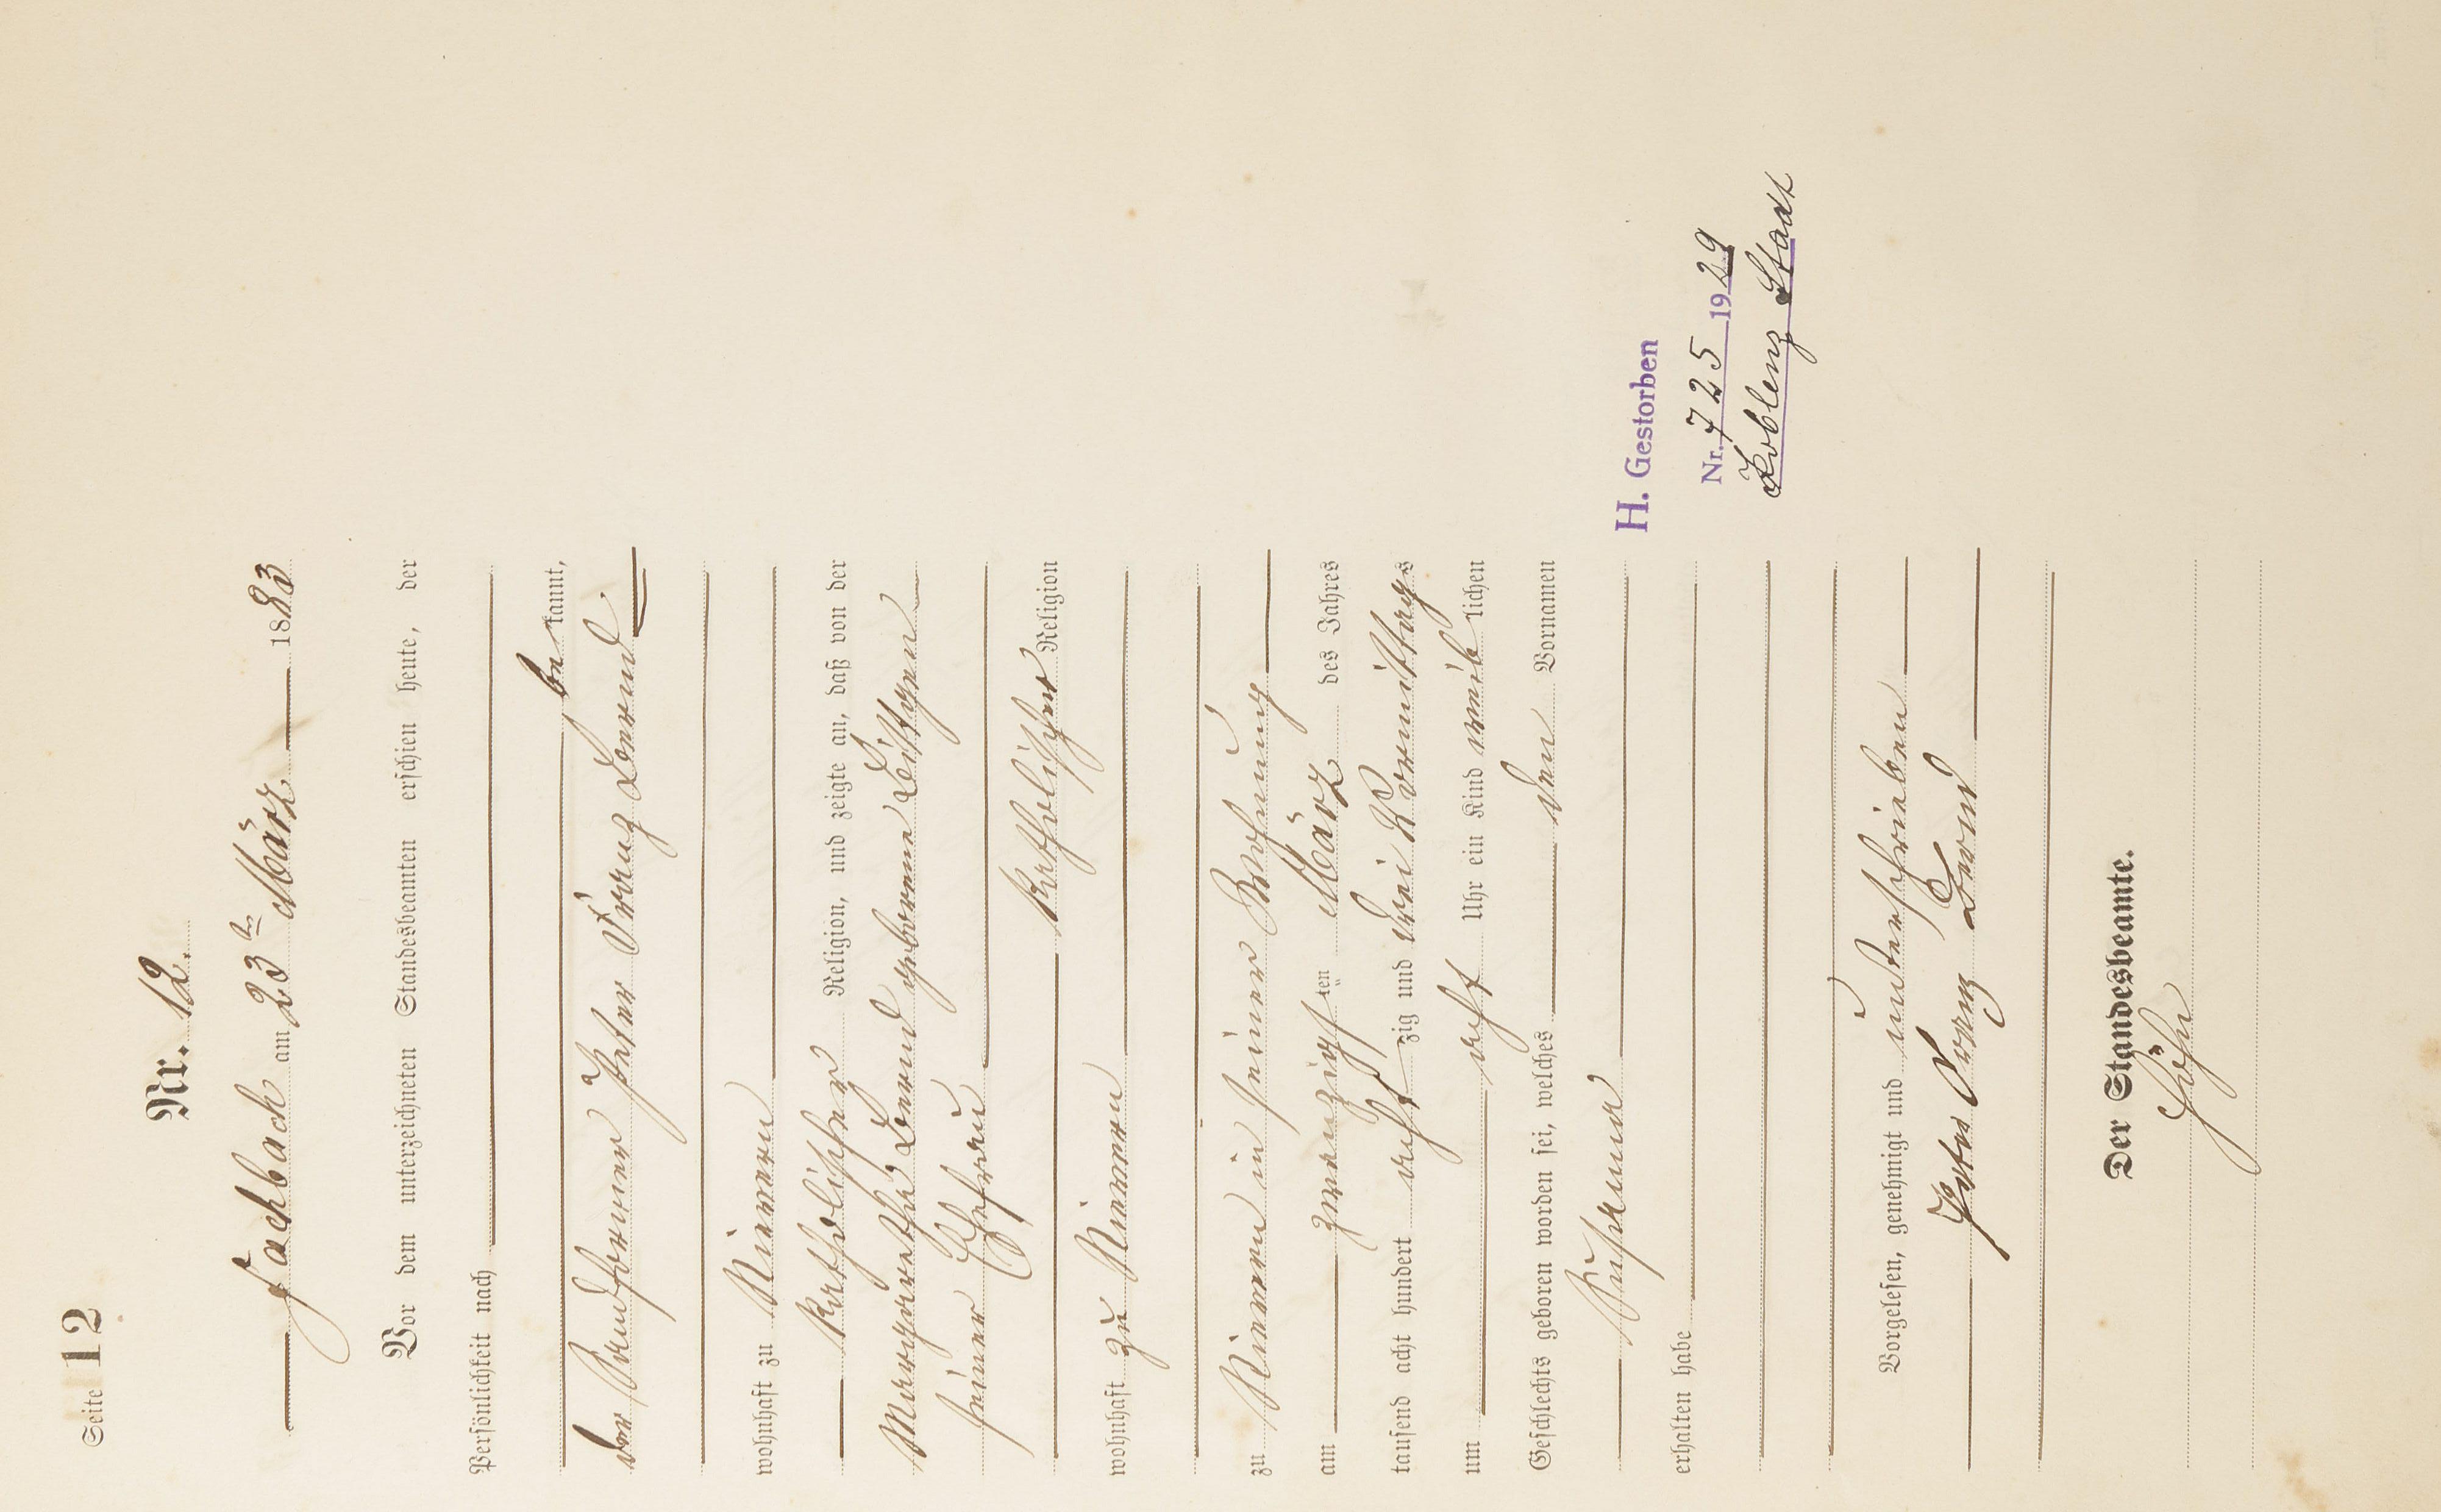 Seite 12
Nr. 12.
Fachbach am 23ten März 1883
Vor dem unterzeichneten Standesbeamten erschien heute, der
Persönlichkeit nach
be kannt,
der Sandformer Peter Franz Dornd
wohnhaft zu Nievern
katholischer Religion, und zeigte an, daß von der
Margaretha Dornd geborene
seiner Ehefrau
katholischer Religion
wohnhaft zu Nievern
zu Nievern in seiner Wohnung
am zwanzigsten März des Jahres
tausend acht hundert achtzig und drei Vormittags
um acht Uhr ein Kind weiblichen
Geschlechts geboren worden sei, welches den Vornamen
Susanna
H. Gestorben
erhalten habe
Nr. 725 1929
Koblenz Stadt
Vorgelesen, genehmigt und unterschrieben
Peter Franz Dornd
Der Standesbeamte.